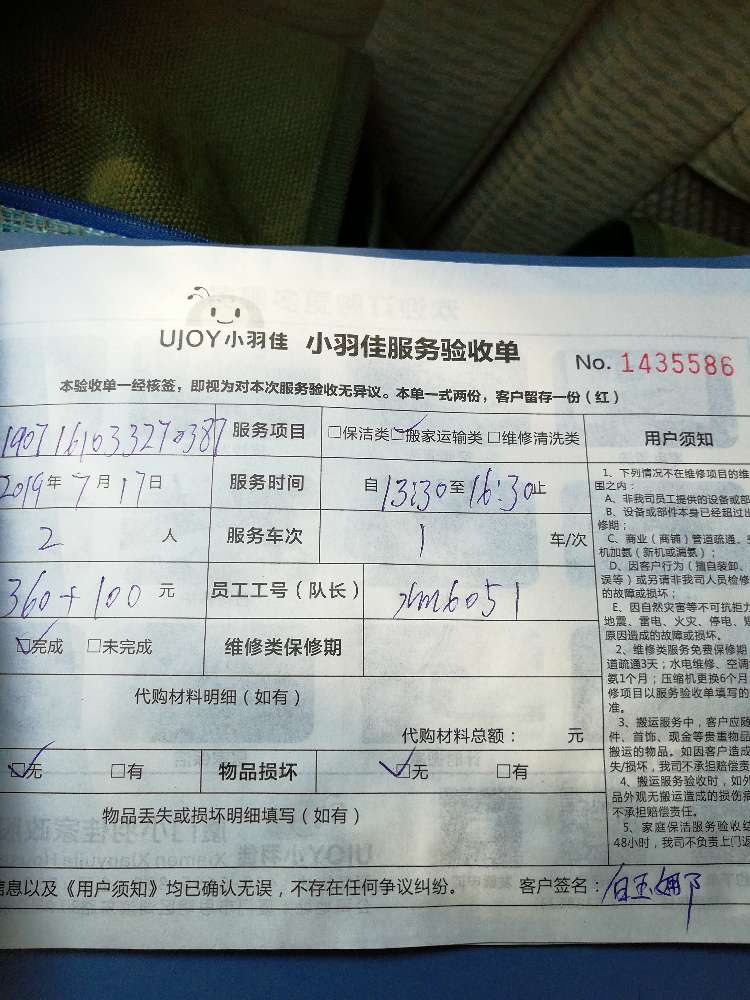 UJOY小羽佳 小羽佳服务验收单 No. 1435586
本验收单一经核签，即视为对本次服务验收无异议。本单一式两份，客户留存一份（红）
服务项目 □保洁类 ☑搬家运输类 □维修清洗类 用户须知
2019年7月17日 服务时间 自13:30至16:30止
2 人 服务车次 1 车/次
360+100 元 员工工号（队长） xm6051
☑完成 □未完成 维修类保修期
代购材料明细（如有）
代购材料总额： 元
☑无 □有 物品损坏 ☑无 □有
物品丢失或损坏明细填写（如有）
息以及《用户须知》均已确认无误，不存在任何争议纠纷。 客户签名：
1、下列情况不在维修项目的维
围之内：
A、非我司员工提供的设备或部
B、设备或部件本身已经超过出
修期；
C、商业（商铺）管道疏通、
机加氨（新机或漏氨）；
D、因客户行为（擅自装卸、
误等）或另请非我司人员检修
的故障或损坏；
E、因自然灾害等不可抗拒力
地震、雷电、火灾、停电、
原因造成的故障或损坏。
2、维修类服务免费保修期
道疏通3天；水电维修、空调
氨1个月；压缩机更换6个月
修项目以服务验收单填写的
准。
3、搬运服务中，客户应随
件、首饰、现金等贵重物品
搬运的物品。如因客户造成
失/损坏，我司不承担赔偿责
4、搬运服务验收时，如外
品外观无搬运造成的损伤
不承担赔偿责任。
5、家庭保洁服务验收结
48小时，我司不负责上门返